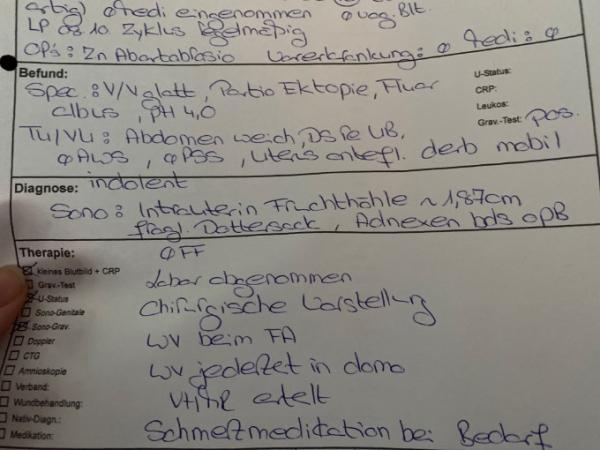 artig) ∅ Medi eingenommen ∅ vag. Blt.
LP 08.10. Zyklus regelmäßig
OP's: Zn Abort Vorerkrankung: ∅ Medi: ∅
Befund:
U-Status:
Spec.: V/V glatt, Portio Ektopie, Fluor
CRP:
albus, pH 4,0
Leukos:
Grav.-Test: pos.
TU/VU: Abdomen weich, DS üb UB,
∅ AWS, ∅ PSS, Uterus antefl. derb mobil
indolent
Diagnose:
Sono: Intrauterin Fruchthöhle ~ 1,87cm
fragl. Dottersack, Adnexen bds opB
Therapie: ∅ FF
kleines Blutbild + CRP
Labor abgenommen
Grav.-Test
U-Status
Chirurgische Vorstellung
Sono-Genitale
Sono-Grav.
WV beim FA
Doppler
CTG
WV jederzeit in domo
Amnioskopie
Verband:
VHMR erteilt
Wundbehandlung:
Nativ-Diagn.:
Schmerzmedikation bei Bedarf
Medikation: